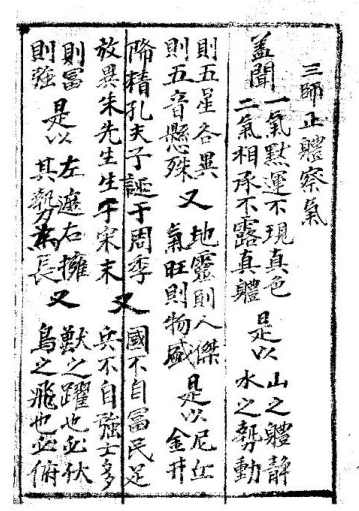 三師止體察氣
蓋聞
一氣默運不現真色
二氣相承不露真體
是以
山之體靜
水之勢動
則五星各異
則五音懸殊
又
地靈則人傑
氣旺則物盛
是以
尼丘
金井
降精孔夫子誕于周季
放異朱先生生于宋末
又
國不自富民足
兵不自強士多
則富
則強
是以
左遮右擁
其勢為長
又
獸之躍也必伏
鳥之飛也必俯